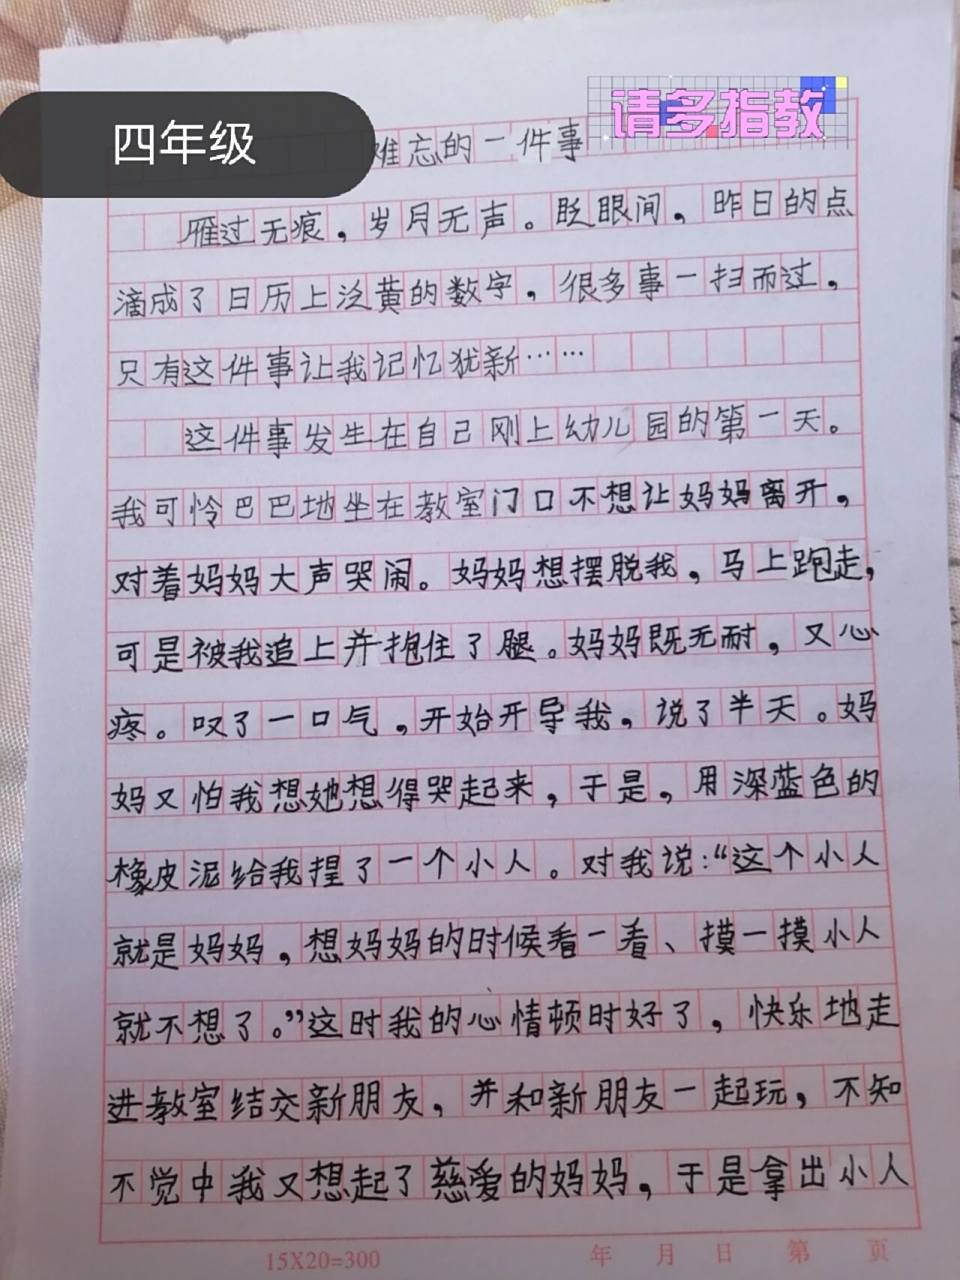 四年级
请多指教
难忘的一件事
雁过无痕，岁月无声。眨眼间，昨日的点
滴成了日历上泛黄的数字，很多事一扫而过，
只有这件事让我记忆犹新……
这件事发生在自己刚上幼儿园的第一天。
我可怜巴巴地坐在教室门口不想让妈妈离开，
对着妈妈大声哭闹。妈妈想摆脱我，马上跑走，
可是被我追上并抱住了腿。妈妈既无耐，又心
疼。叹了一口气，开始开导我，说了半天。妈
妈又怕我想她想得哭起来，于是，用深蓝色的
橡皮泥给我捏了一个小人。对我说：“这个小人
就是妈妈，想妈妈的时候看一看、摸一摸小人
就不想了。”这时我的心情顿时好了，快乐地走
进教室结交新朋友，并和新朋友一起玩，不知
不觉中我又想起了慈爱的妈妈，于是拿出小人
15X20=300 年 月 日 第 页